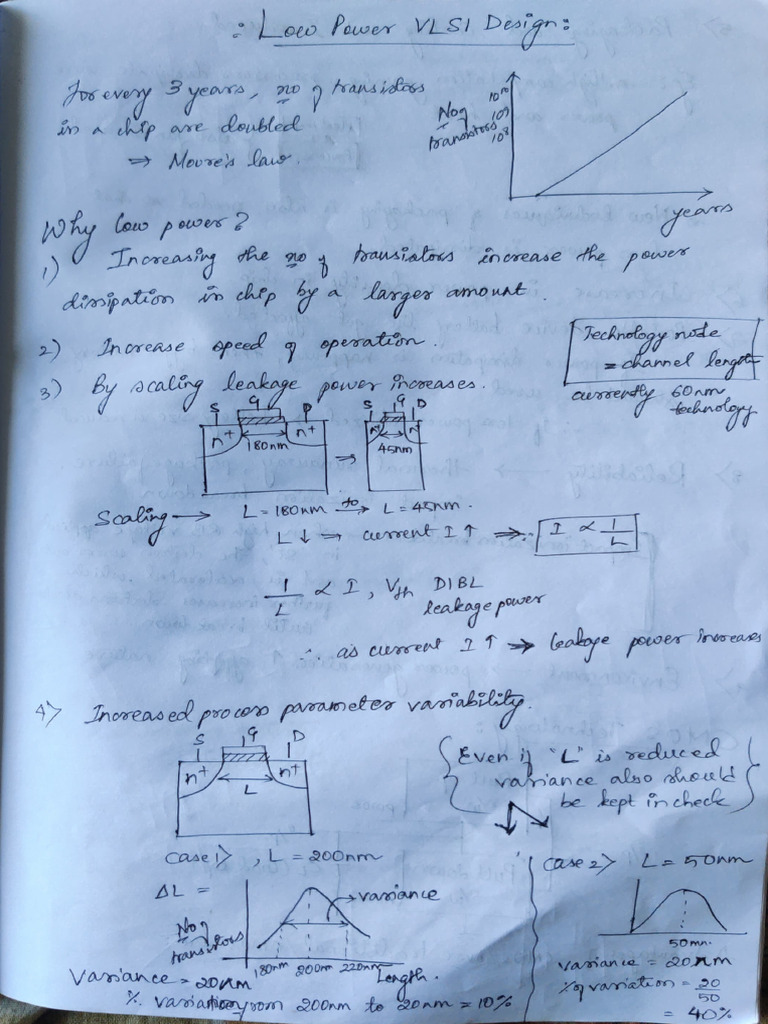 : Low Power VLSI Design:
For every 3 years, no of transistors
in a chip are doubled
⇒ Moore's law.
No of
transistors
10¹⁰
10⁹
10⁸
years
Why low power?
1) Increasing the no of transistors increase the power
dissipation in chip by a larger amount.
2) Increase speed of operation.
Technology node
= channel length
currently 60nm
technology
3) By scaling leakage power increases.
S G D
n+ 180nm n+
⇒
S G D
n+ 45nm n+
Scaling → L = 180nm to→ L = 45nm.
L ↓ → current I ↑ ⇒ ∴ I ∝ 1/L
1/L ∝ I , Vth DIBL
leakage power
∴ as current I ↑ ⇒ leakage power increases
4) Increased process parameter variability.
S G D
n+ L n+
{Even if "L" is reduced
variance also should
be kept in check}
case 1) , L = 200nm
ΔL =
No of
transistors
variance
180nm 200nm 220nm Length.
Variance = 20nm
% variation from 200nm to 20nm = 10%
case 2) L = 50nm
50nm.
variance = 20nm
% of variation = 20/50
= 40%